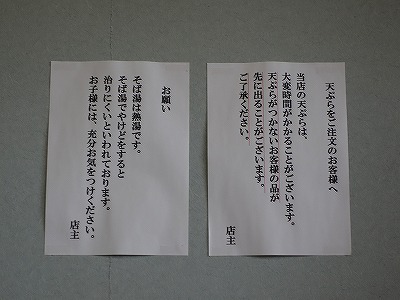 天ぷらをご注文のお客様へ
当店の天ぷらは、
大変時間がかかることがございます。
天ぷらがつかないお客様の品が
先に出ることがございます。
ご了承ください。
店主
お願い
そば湯は熱湯です。
そば湯でやけどをすると
治りにくいといわれております。
お子様には、充分お気をつけください。
店主